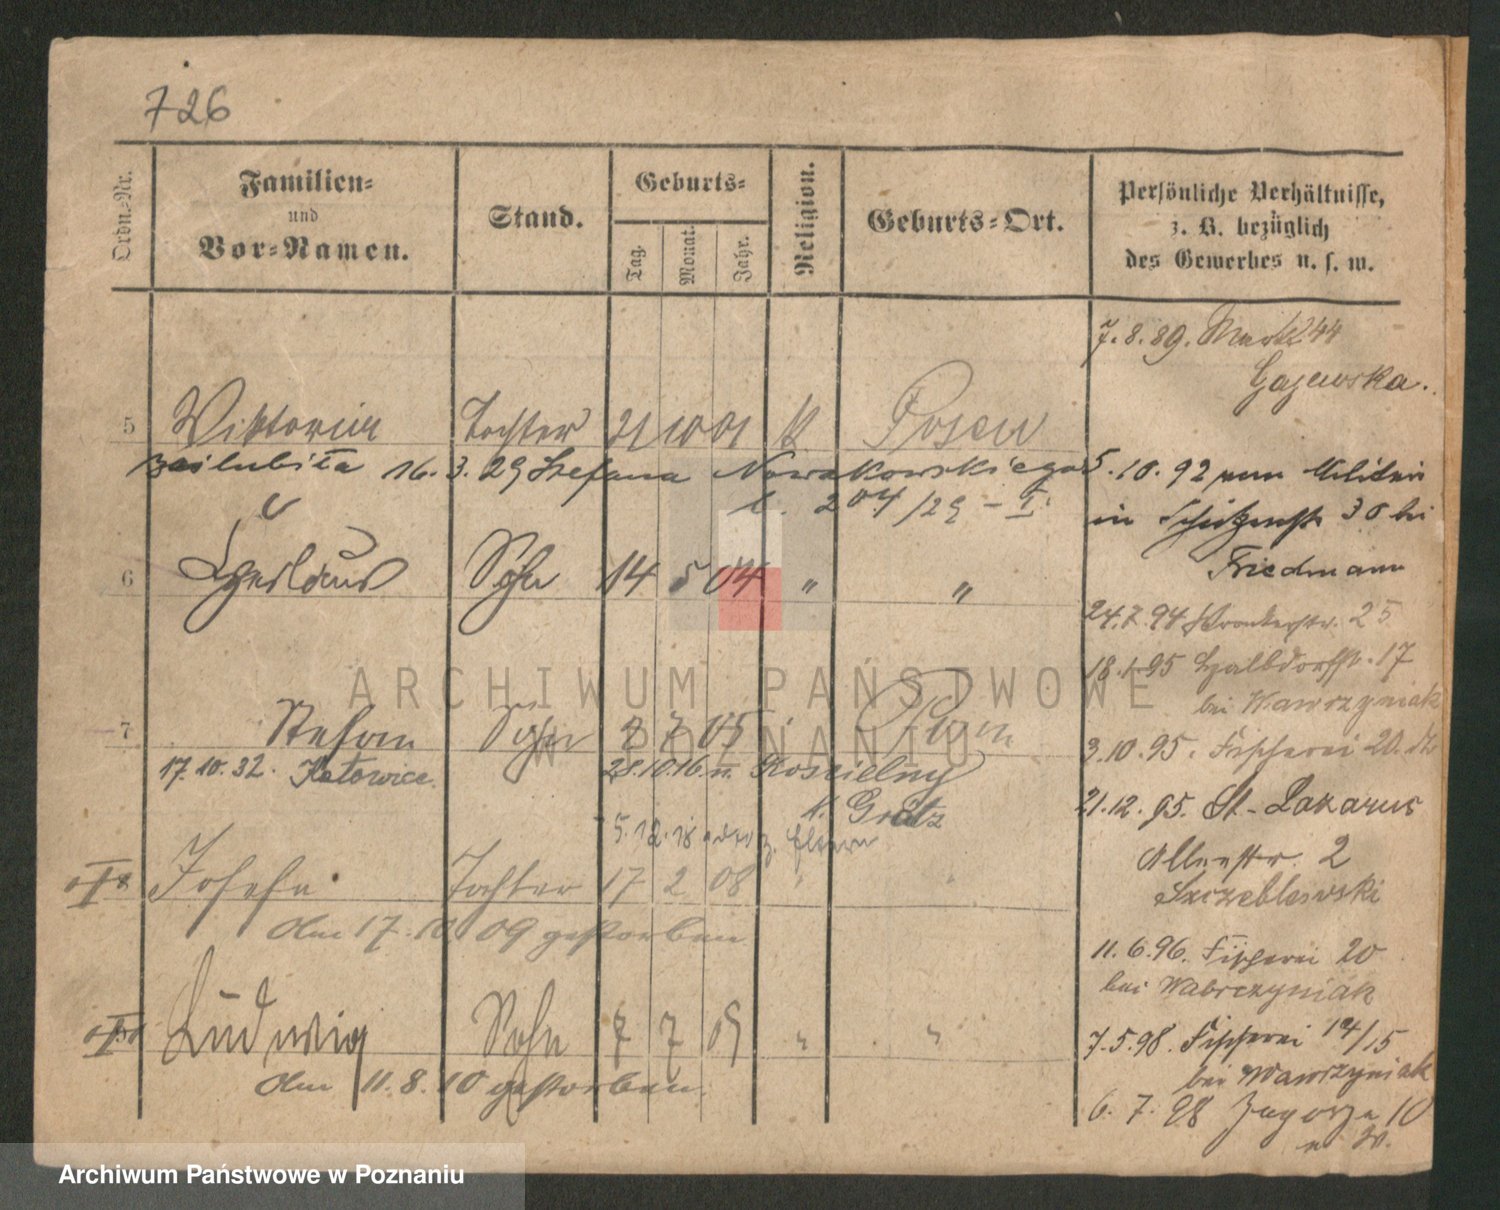 726
Ordn.-Nr.
Familien-
und
Vor-Namen.
Stand.
Geburts-
Tag.
Monat.
Jahr.
Religion.
Geburts-Ort.
Persönliche Verhältnisse,
z. B. bezüglich
des Gewerbes u. s. w.
7.8.89. Markt 44
Gajewska.
5 Wiktoria Tochter 21 10 01 k Posen
zaślubiła 16.3.29 Stefana Nowakowskiego
L. 204/29 - I.
5.10.92 zum Militär
in Schützenstr 30 bei
Friedmann
6 Czeslaus Sohn 14 5 04 " "
24.7.94 Wronkerstr. 25
18.1.95 Halbdorfstr. 17
bei Wawrzyniak
7 Stefan Sohn 7 05
17.10.32. Katowice.
28.10.16 n. Kościelny
k. Grätz
5.12.18 z. Eltern
3.10.95. Fischerei 20.
21.12.95. St. Lazarus
Allestr. 2
Szczeblewski
8 Josefa Tochter 17 2 08 " "
den 17.10 09 gestorben
11.6.96. Fischerei 20
bei Wawrzyniak
Ludwig Sohn 7 7 09 " "
den 11.8.10 gestorben.
7.5.98. Fischerei 14/15
bei Wawrzyniak
6.7.98 Zagorze 10
ARCHIWUM PAŃSTWOWE
W POZNANIU
Archiwum Państwowe w Poznaniu